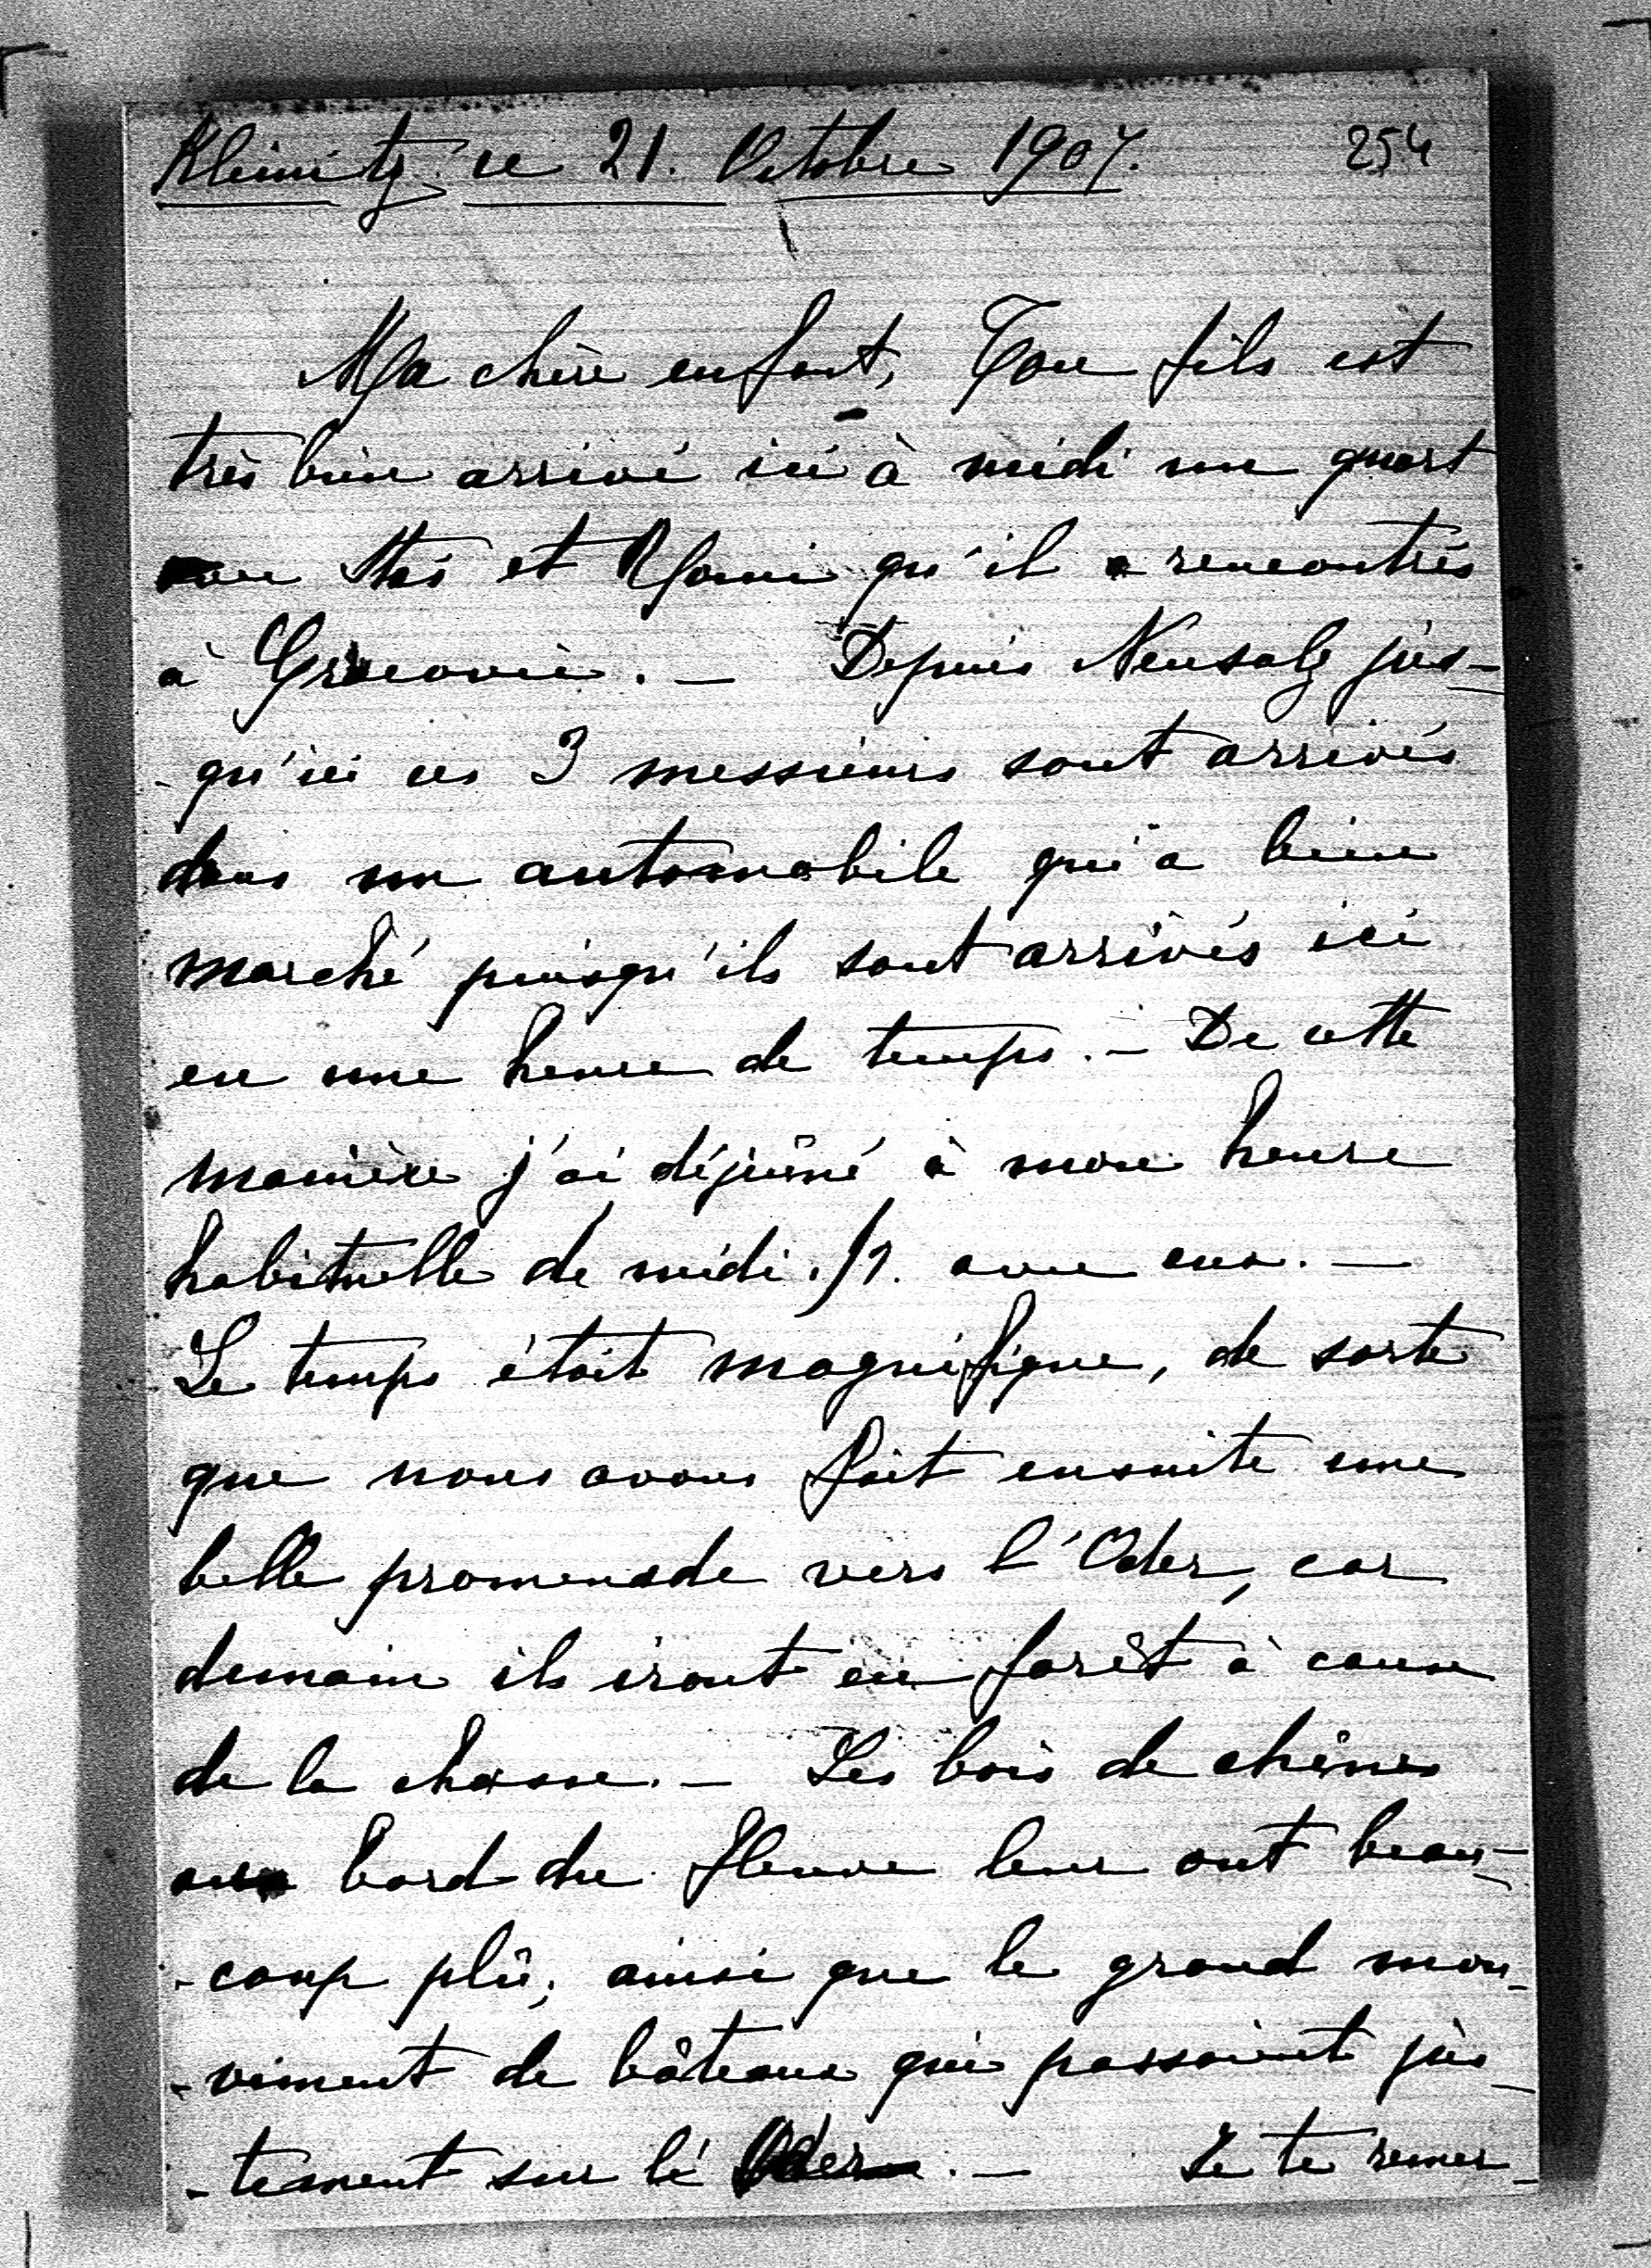 Kleinitz ce 21. Octobre 1907. 254
Ma chère enfant, Ton fils est
très bien arrivé ici à midi un quart
avec Stas et qu'il a rencontrés
à Cracovie. — Depuis Neusalz jus-
-qu'ici ces 3 messieurs sont arrivés
dans un automobile qui a bien
marché puisqu'ils sont arrivés ici
en une heure de temps. — De cette
manière j'ai déjeûné à mon heure
habituelle de midi 1/2. avec eux. —
Le temps était magnifique, de sorte
que nous avons fait ensuite une
belle promenade vers l'Oder, car
demain ils iront en forêt à cause
de la chasse. — Les bois de chênes
au bord du fleuve leur ont beau-
-coup plû, ainsi que le grand mou-
-vement de bâteaux qui passaient jus-
-tement sur l' Oder. — Je te remer-